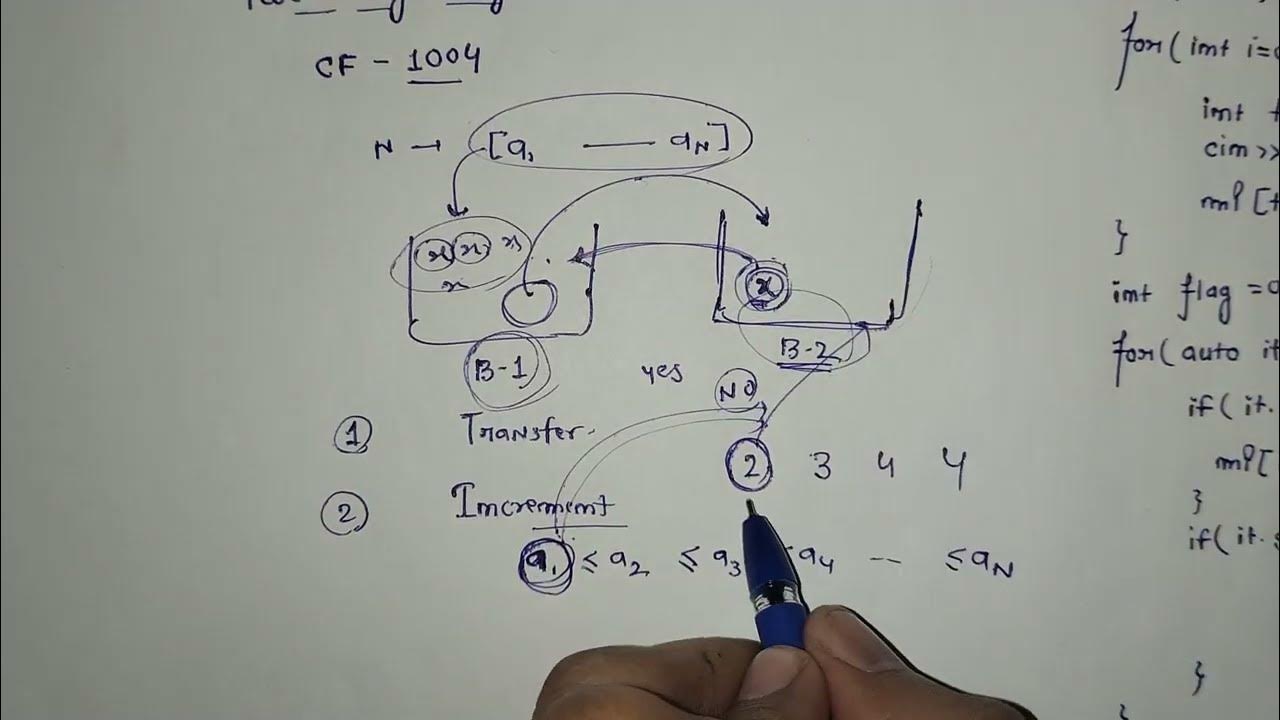 CF - 1004
N → [a₁ —— a_N]
x x x
x
x
B-1
B-2
yes
NO
1 Transfer.
2 3 4 4
2 Increment
a₁ ≤ a₂ ≤ a₃ ≤ a₄ -- ≤ a_N
for( int i=0
int t
cin >>
mp[t
}
int flag =0
for( auto it
if( it.
mp[
}
if( it.s
}
}